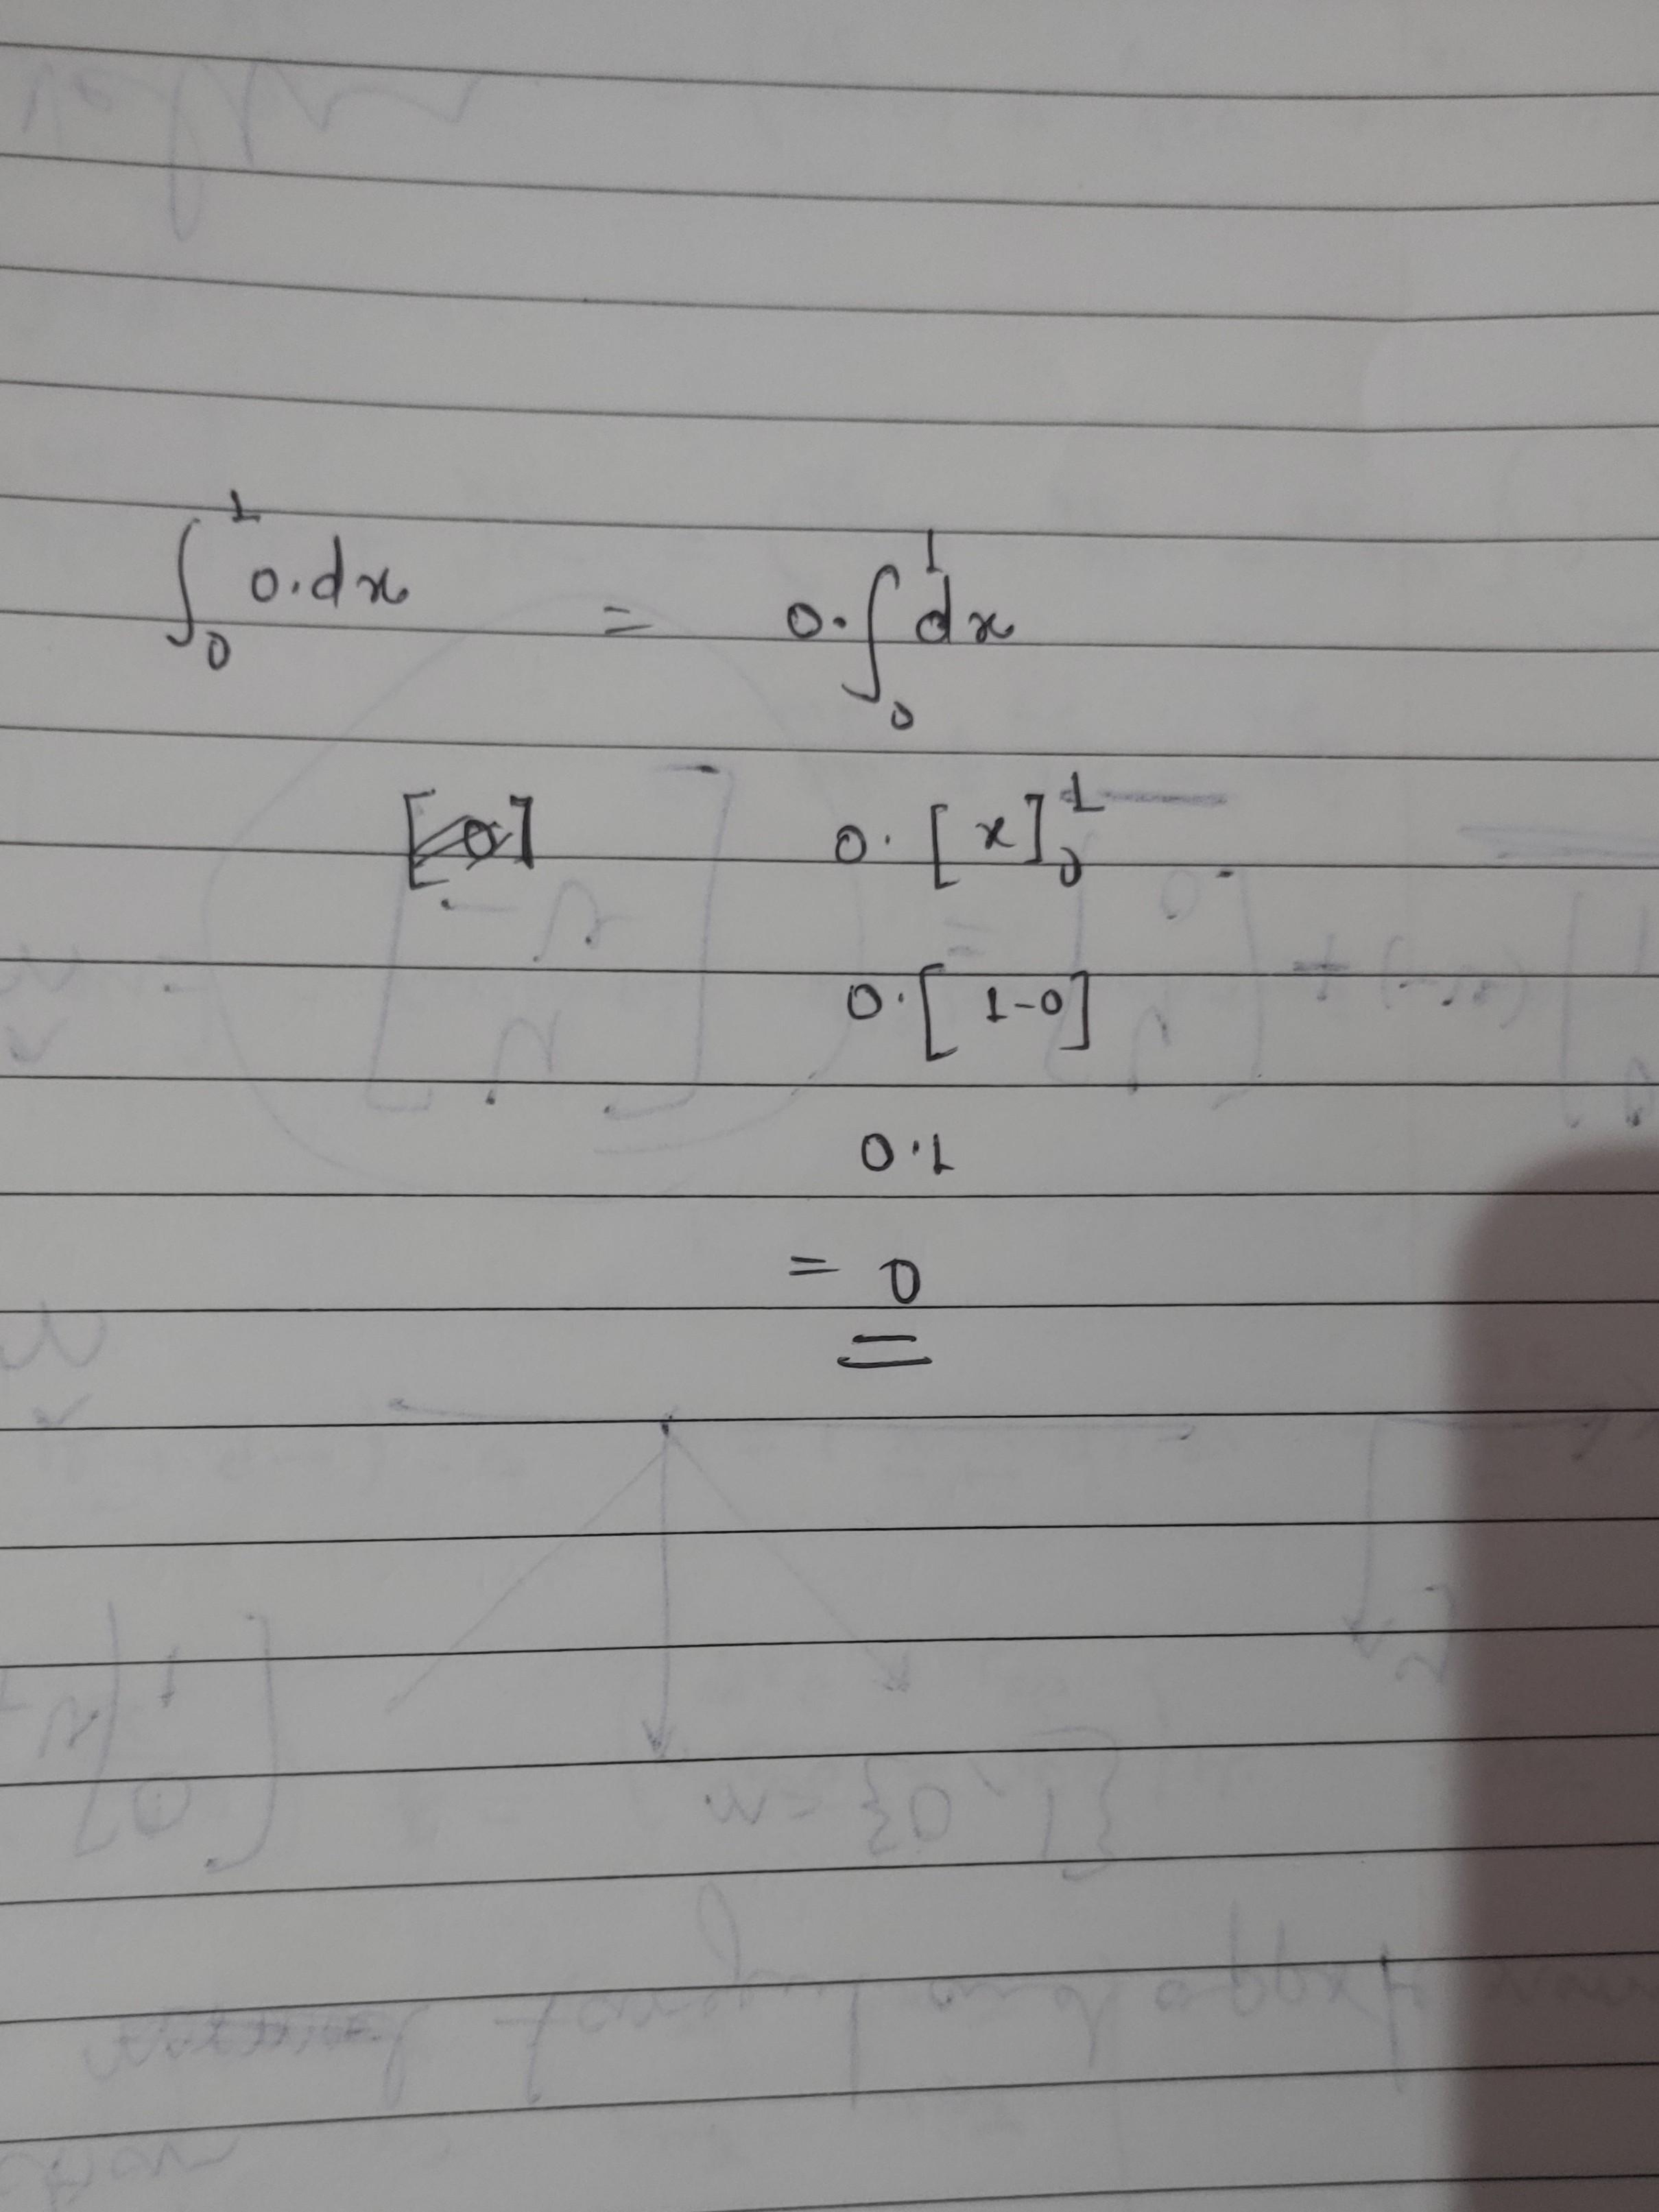 ∫₀¹ 0.dx = 0.∫₀¹ dx
0.[x]₀¹
0.[1-0]
0.1
= 0